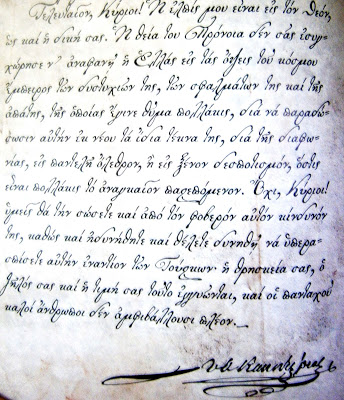 Τελευταῖον, Κύριοι! Ἡ ἐλπίς μου εἶναι εἰς τὸν Θεόν,
ὡς καὶ ἡ ἐδική σας. Ἡ θεία του Πρόνοια δὲν θὰ ἐσυγ-
χώρησε ν' ἀναβῇ ἡ Ἑλλὰς εἰς τὰς ὄψεις τοῦ κόσμου
ἔμπειρος τῶν δυστυχιῶν της, τῶν σφαλμάτων της καὶ τῆς
ἀπάτης, τῆς ὁποίας ἔγινε θῦμα πολλάκις, διὰ νὰ παραδώ-
σωσιν αὐτὴν ἐκ νέου τὰ ἴδια τέκνα της, διὰ τῆς διαφω-
νίας, εἰς παντελῆ ὄλεθρον, ἢ εἰς ξένον δεσποτισμόν, ὅστις
εἶναι πολλάκις τὸ ἀναγκαῖον παρεπόμενον. Ὄχι, Κύριοι!
ὑμεῖς θὰ τὴν σώσετε καὶ ἀπὸ τὸν φοβερὸν αὐτὸν κίνδυνόν
της, καθὼς καὶ ἠδυνήθητε καὶ θέλετε δυνηθῆ νὰ ὑπερα-
σπίσετε αὐτὴν ἐναντίον τῶν Τούρκων· ἡ θρησκεία σας, ὁ
ζῆλός σας καὶ ἡ τιμή σας τοῦτο ἐγγυῶνται, καὶ οἱ πανταχοῦ
καλοὶ ἄνθρωποι δὲν ἀμφιβάλλουσι πλέον.